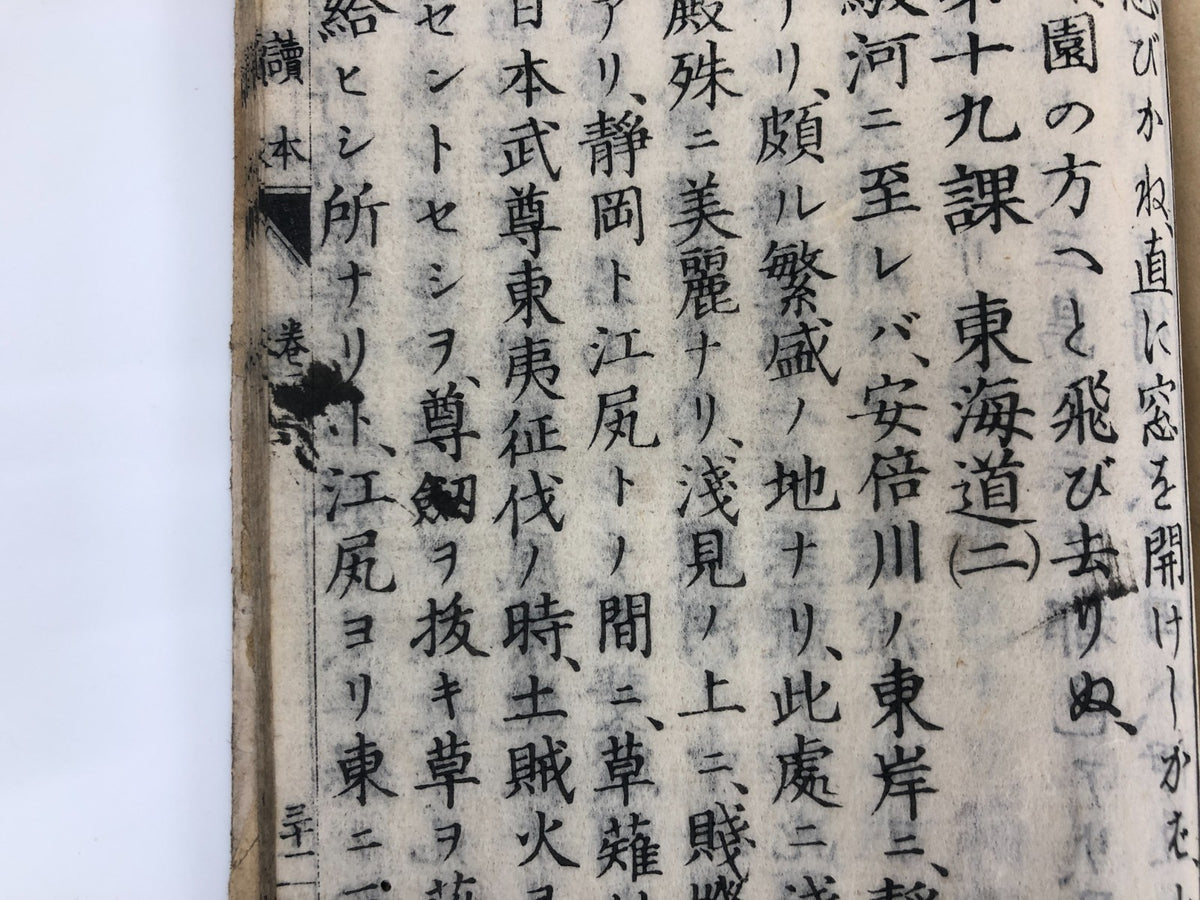 びかね、直に窓を開けしかば、
園の方へと飛び去りぬ、
十九課 東海道(二)
河ニ至レバ、安倍川ノ東岸ニ、靜
アリ、頗ル繁盛ノ地ナリ、此處ニ淺
殿殊ニ美麗ナリ、淺見ノ上ニ、賤
アリ、靜岡ト江尻トノ間ニ、草薙
日本武尊東夷征伐ノ時、土賊火ヲ
セントセシヲ、尊劔ヲ拔キ草ヲ
給ヒシ所ナリト、江尻ヨリ東ニ
讀本
卷
三十一